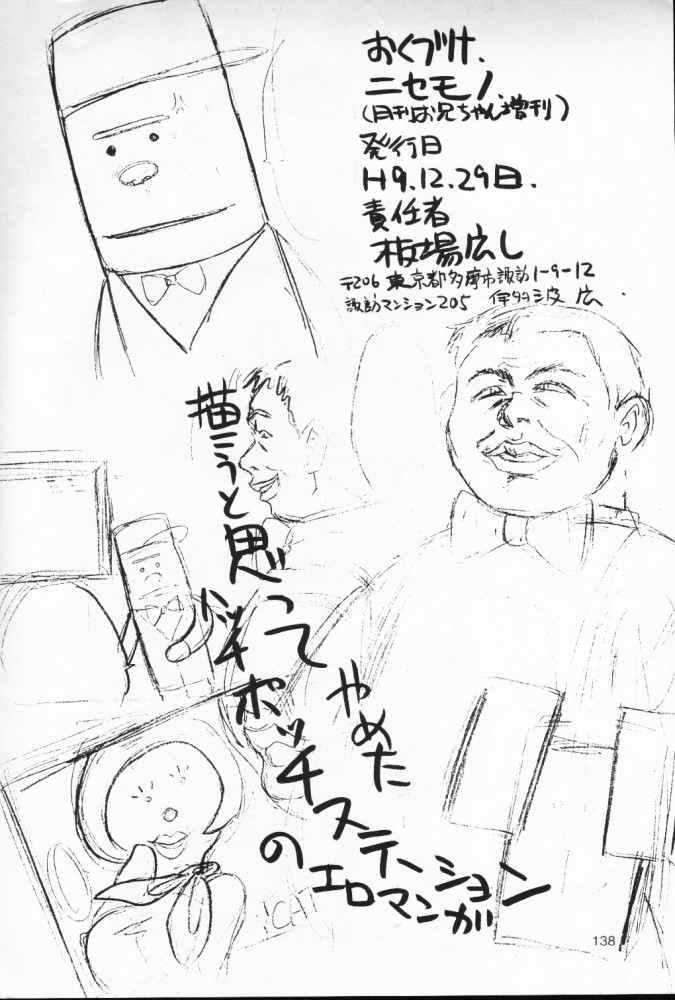 おくづけ.
ニセモノ.
(月刊お兄ちゃん増刊)
発行日
H9.12.29日.
責任者
板場広し
〒206 東京都多摩市諏訪1-9-12
諏訪マンション205 伊多波 広.
描こうと思って
やめた
ハッチポッチステーション
の
エロマンガ
ICAT
138